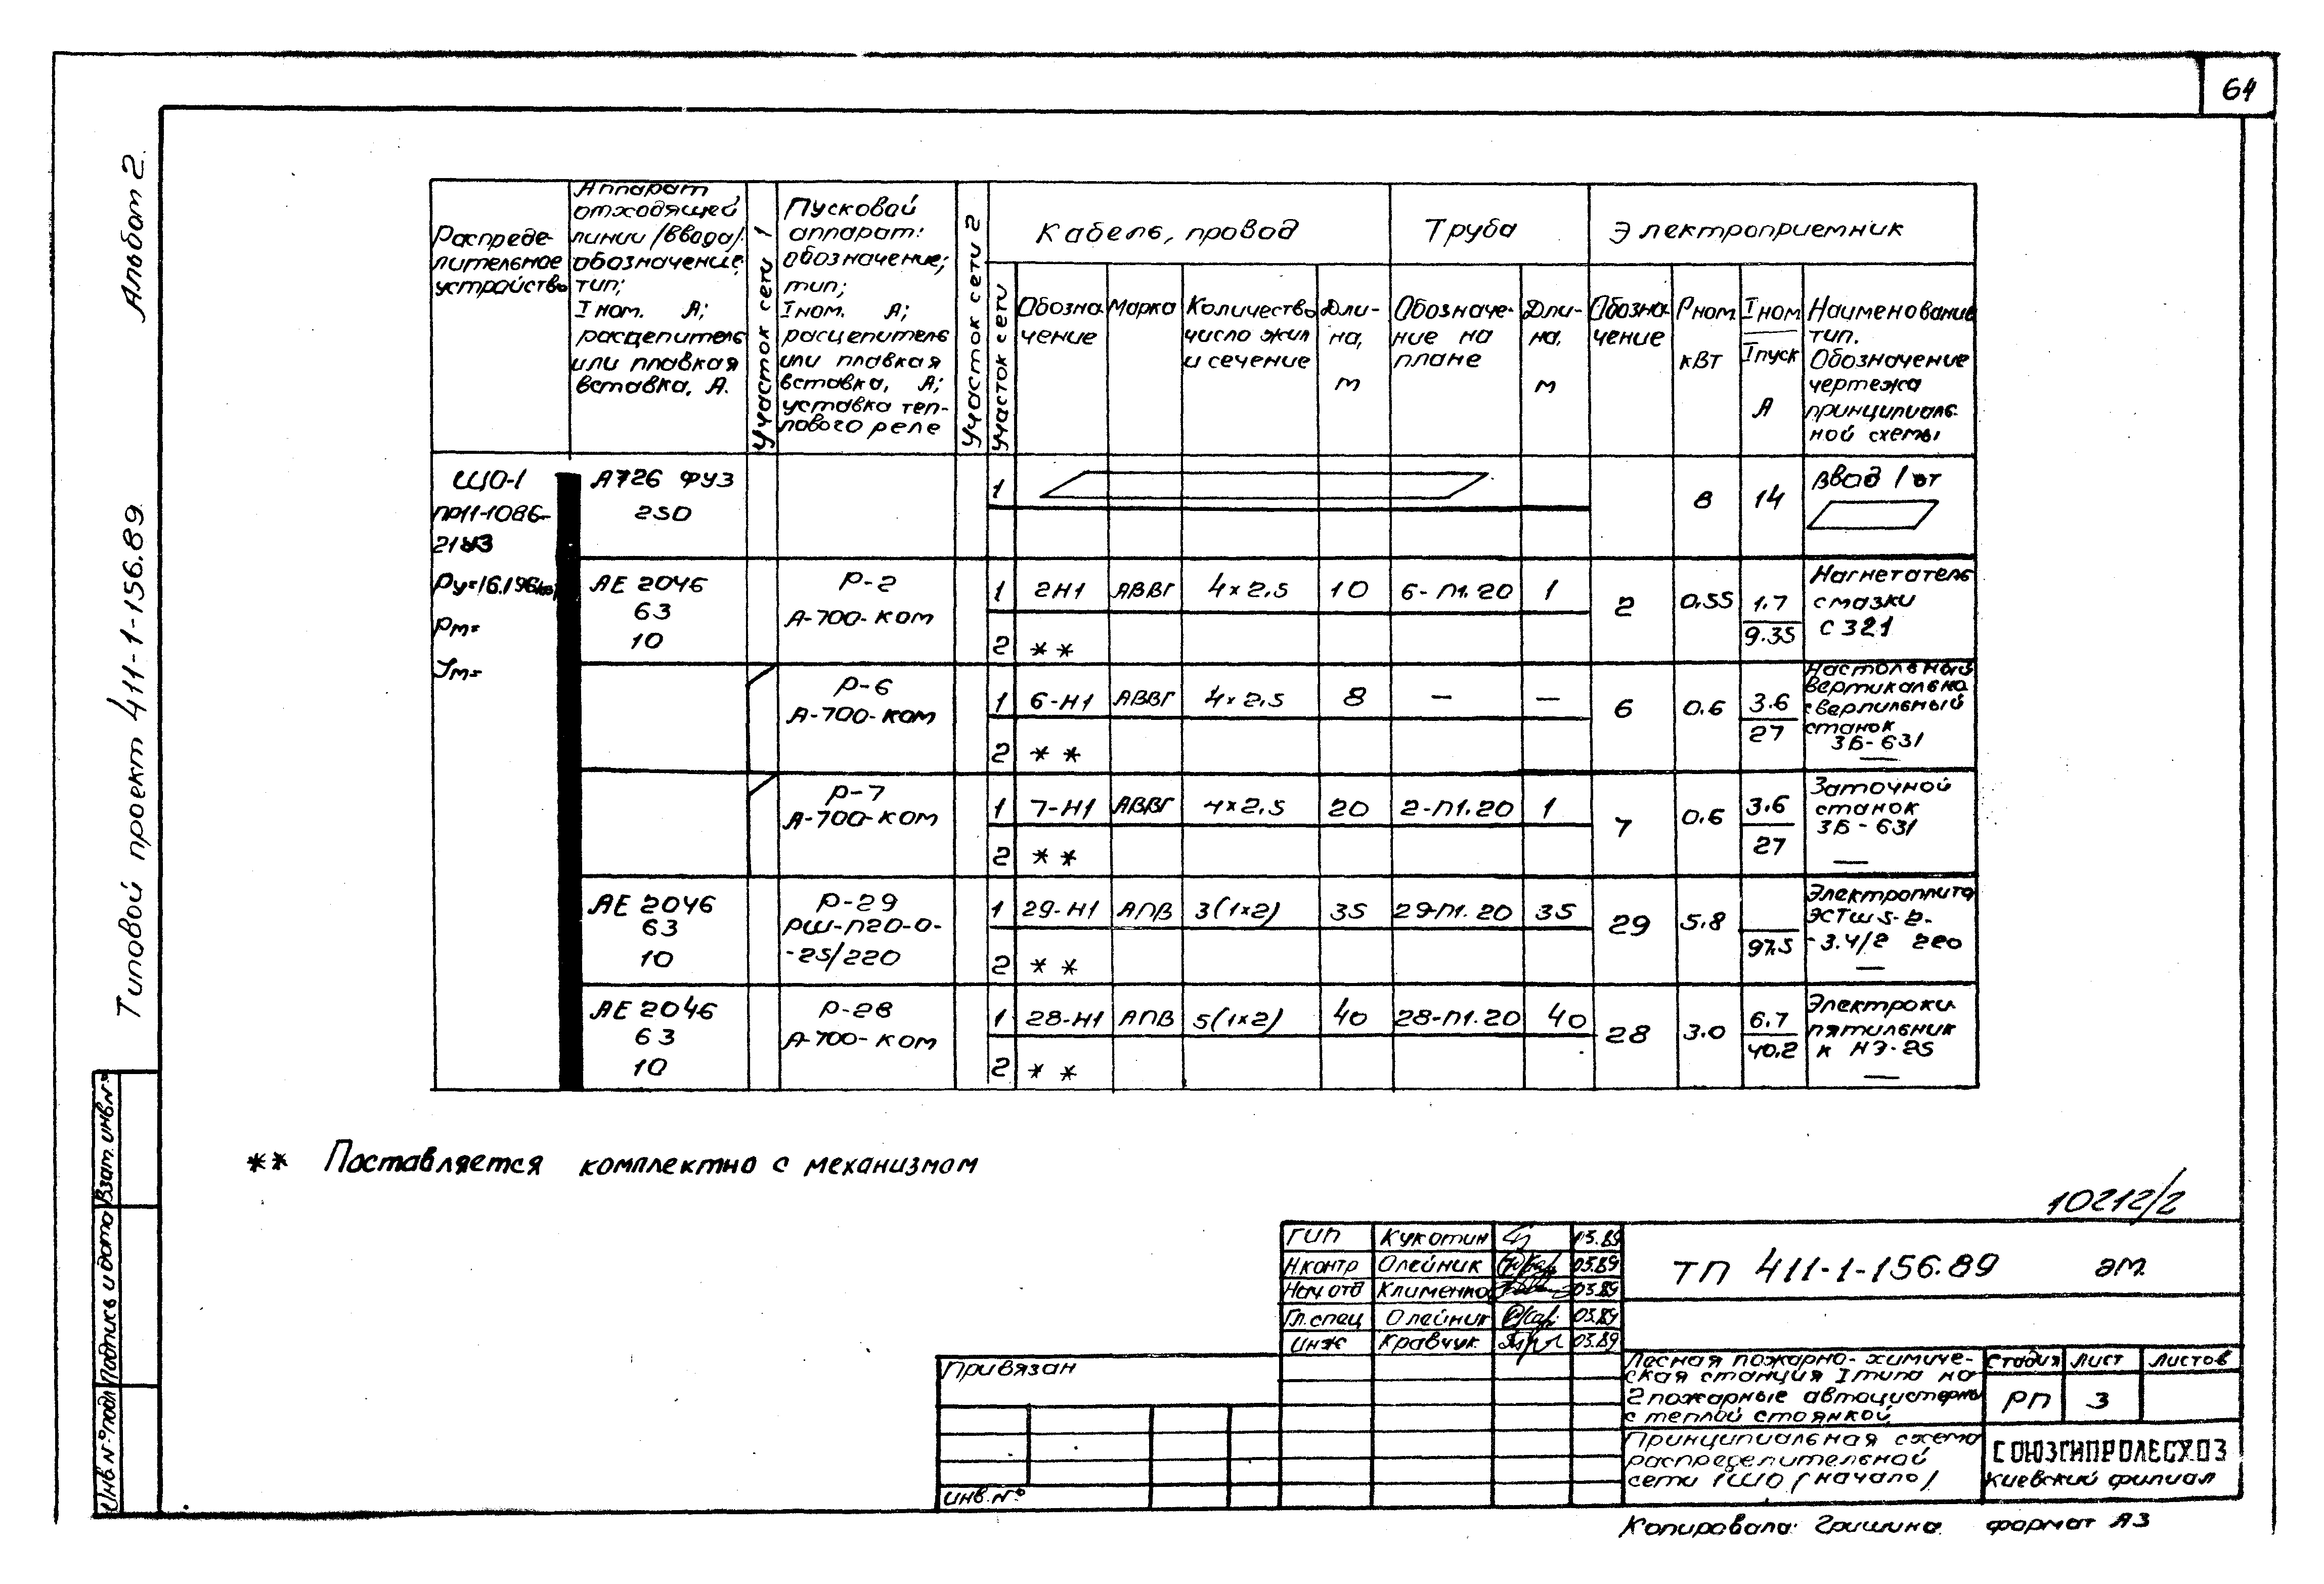 64
Альбом 2.
Типовой проект 411-1-156.89
Распреде-
лительное
устройство
Аппарат
отходящей
линии /ввода/:
обозначение;
тип;
Iном. А;
расцепитель
или плавкая
вставка, А.
Участок сети 1
Пусковой
аппарат:
обозначение;
тип;
Iном. А;
расцепитель
или плавкая
вставка, А;
уставка теп-
лового реле
Участок сети 2
Кабель, провод
Труба
Электроприемник
Участок сети
Обозна-
чение
Марка
Количество
число жил
и сечение
Дли-
на,
м
Обозначе-
ние на
плане
Дли-
на,
м
Обозна-
чение
Рном
кВт
Iном
Iпуск
А
Наименование
тип.
Обозначение
чертежа
принципиаль-
ной схемы
ЩО-1
ПР11-1086-
21У3
Ру=16.196кВт
Рм=
Iм=
А726 ФУЗ
250
1
8
14
Ввод 1 от
АЕ 2046
63
10
Р-2
А-700-ком
1 2Н1 АВВГ 4×2,5 10 6-П1.20 1
2 **
2
0.55
1.7
9.35
Нагнетатель
смазки
С 321
Р-6
А-700-ком
1 6-Н1 АВВГ 4×2,5 8 — —
2 **
6
0.6
3.6
27
Настольный
вертикально
сверлильный
станок
3Б-631
—
Р-7
А-700-ком
1 7-Н1 АВВГ 4×2,5 20 2-П1.20 1
2 **
7
0.6
3.6
27
Заточной
станок
3Б-631
—
АЕ 2046
63
10
Р-29
РШ-П20-0-
-25/220
1 29-Н1 АПВ 3(1×2) 35 29-П1.20 35
2 **
29
5.8
97.5
Электроплита
ЭСТШ 5-2-
-3.4/2 220
—
АЕ 2046
63
10
Р-28
А-700-ком
1 28-Н1 АПВ 5(1×2) 40 28-П1.20 40
2 **
28
3.0
6.7
40.2
Электроки-
пятильник
К НЭ-25
—
** Поставляется комплектно с механизмом
10212/2
ГИП Кукотин 05.89
Н.контр Олейник 05.89
Нач отд Клименко 05.89
Гл.спец Олейник 05.89
Инж Кравчук 05.89
ТП 411-1-156.89 эм.
Привязан
Инв.№
Лесная пожарно-химиче-
ская станция I типа на
2 пожарные автоцистерны
с теплой стоянкой
Стадия Лист Листов
РП 3
Принципиальная схема
распределительной
сети 1ЩО (начало)
СОЮЗГИПРОЛЕСХОЗ
Киевский филиал
Копировала: Гришина формат А3
Взам. инв.№
Подпись и дата
Инв №подл